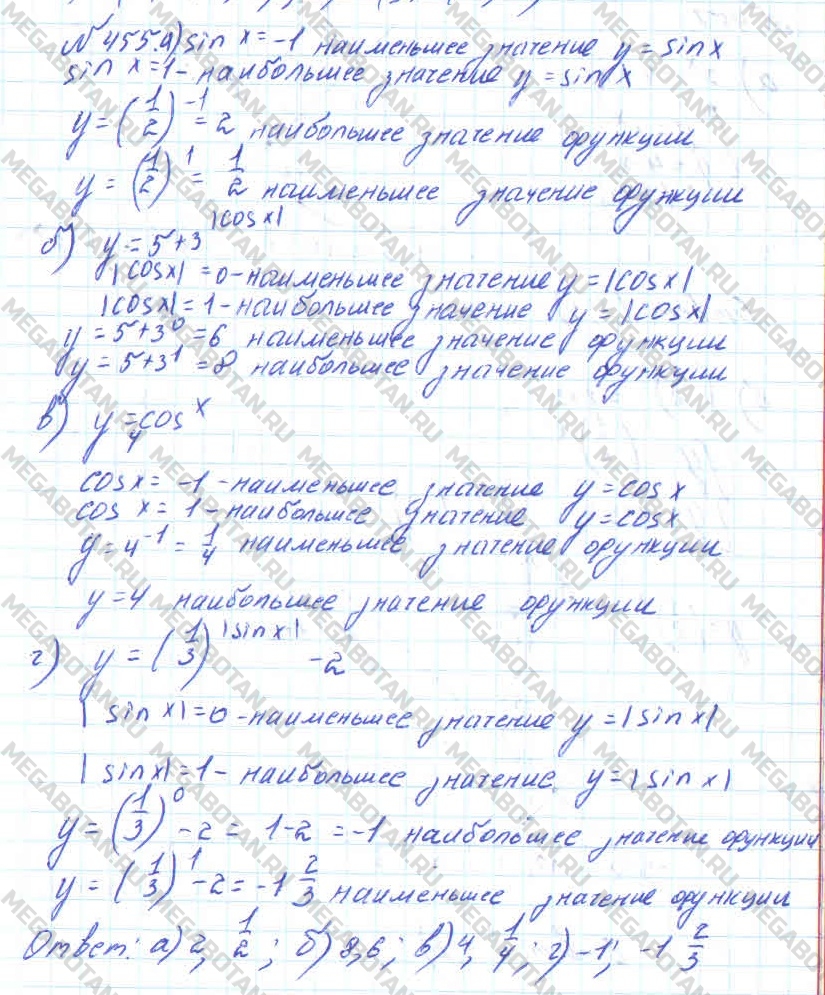 N 455.а) sin x = -1 наименьшее значение y = sin x
sin x = 1 - наибольшее значение y = sin x
y = (1/2)^-1 = 2 наибольшее значение функции
y = (1/2)^1 = 1/2 наименьшее значение функции
б) y = 5 + 3^|cos x|
|cos x| = 0 - наименьшее значение y = |cos x|
|cos x| = 1 - наибольшее значение y = |cos x|
y = 5 + 3^0 = 6 наименьшее значение функции
y = 5 + 3^1 = 8 наибольшее значение функции
в) y = 4^cos x
cos x = -1 - наименьшее значение y = cos x
cos x = 1 - наибольшее значение y = cos x
y = 4^-1 = 1/4 наименьшее значение функции
y = 4 наибольшее значение функции
г) y = (1/3)^|sin x| - 2
|sin x| = 0 - наименьшее значение y = |sin x|
|sin x| = 1 - наибольшее значение y = |sin x|
y = (1/3)^0 - 2 = 1 - 2 = -1 наибольшее значение функции
y = (1/3)^1 - 2 = -1 2/3 наименьшее значение функции
Ответ: а) 2, 1/2; б) 8, 6; в) 4, 1/4; г) -1; -1 2/3
MEGABOTAN.RU